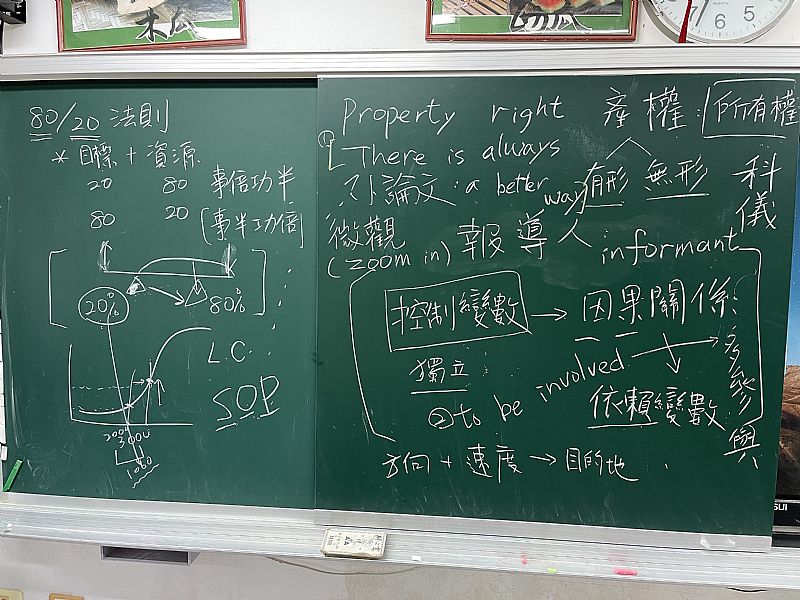 木瓜
80/20 法則
* 目標 + 資源
20 80 事倍功半
80 20 [事半功倍]
20% 80%
L.C.
SOP
2000 3000
1000
Property right 產權: 所有權
① There is always
a better way
論文:
有形 無形
科儀
微觀
(zoom in) 報導人 informant
控制變數 → 因果關係
獨立
② to be involved
依賴變數
參與
方向 + 速度 → 目的地